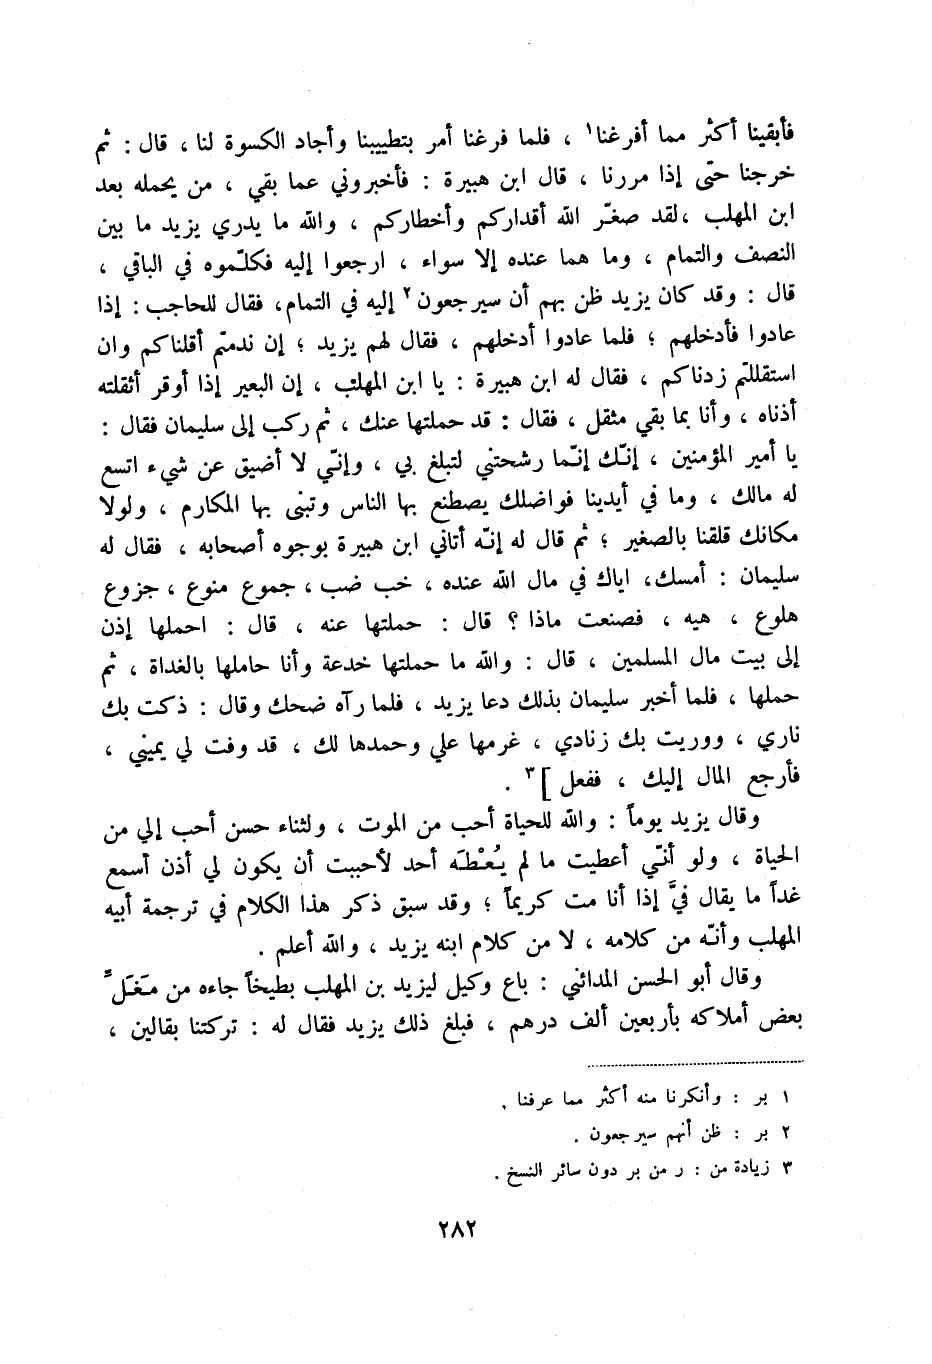 فأبقينا أكثر مما أفرغنا١ ، فلما فرغنا أمر بتطييبنا وأجاد الكسوة لنا ، قال : ثم
خرجنا حتّى إذا مررنا ، قال ابن هبيرة : فأخبروني عما بقي ، من يحمله بعد
ابن المهلب ،لقد صغّر الله أقداركم وأخطاركم ، والله ما يدري يزيد ما بين
النصف والتمام ، وما هما عنده إلا سواء ، ارجعوا إليه فكلّموه في الباقي ،
قال : وقد كان يزيد ظن بهم أن سيرجعون٢ إليه في التمام، فقال للحاجب : إذا
عادوا فأدخلهم ؛ فلما عادوا أدخلهم ، فقال لهم يزيد ؛ إن ندمتم أقلناكم وان
استقللتم زدناكم ، فقال له ابن هبيرة : يا ابن المهلب ، إن البعير إذا أوقر أثقلته
أذناه ، وأنا بما بقي مثقل ، فقال : قد حملتها عنك ، ثم ركب إلى سليمان فقال :
يا أمير المؤمنين ، إنّك إنّما رشحتني لتبلغ بي ، وإنّي لا أضيق عن شيء اتسع
له مالك ، وما في أيدينا فواضلك يصطنع بها الناس وتبنى بها المكارم ، ولولا
مكانك قلقنا بالصغير ؛ ثم قال له إنّه أتاني ابن هبيرة بوجوه أصحابه ، فقال له
سليمان : أمسك، اياك في مال الله عنده ، خب ضب ، جموع منوع ، جزوع
هلوع ، هيه ، فصنعت ماذا ؟ قال : حملتها عنه ، قال : احملها إذن
إلى بيت مال المسلمين ، قال : والله ما حملتها خدعة وأنا حاملها بالغداة ، ثم
حملها ، فلما أخبر سليمان بذلك دعا يزيد ، فلما رآه ضحك وقال : ذكت بك
ناري ، ووريت بك زنادي ، غرمها علي وحمدها لك ، قد وفت لي يميني ،
فأرجع المال إليك ، ففعل ]٣ .
وقال يزيد يوماً : والله للحياة أحب من الموت ، ولثناء حسن أحب إلي من
الحياة ، ولو أنّي أعطيت ما لم يُعْطَه أحد لأحببت أن يكون لي أذن أسمع
غداً ما يقال فيَّ إذا أنا مت كريماً ؛ وقد سبق ذكر هذا الكلام في ترجمة أبيه
المهلب وأنّه من كلامه ، لا من كلام ابنه يزيد ، والله أعلم .
وقال أبو الحسن المدائني : باع وكيل ليزيد بن المهلب بطيخاً جاءه من مَغَلّ
بعض أملاكه بأربعين ألف درهم ، فبلغ ذلك يزيد فقال له : تركتنا بقالين ،
١ بر : وأنكرنا منه أكثر مما عرفنا .
٢ بر : ظن أنهم سيرجعون .
٣ زيادة من : ر من بر دون سائر النسخ .
٢٨٢